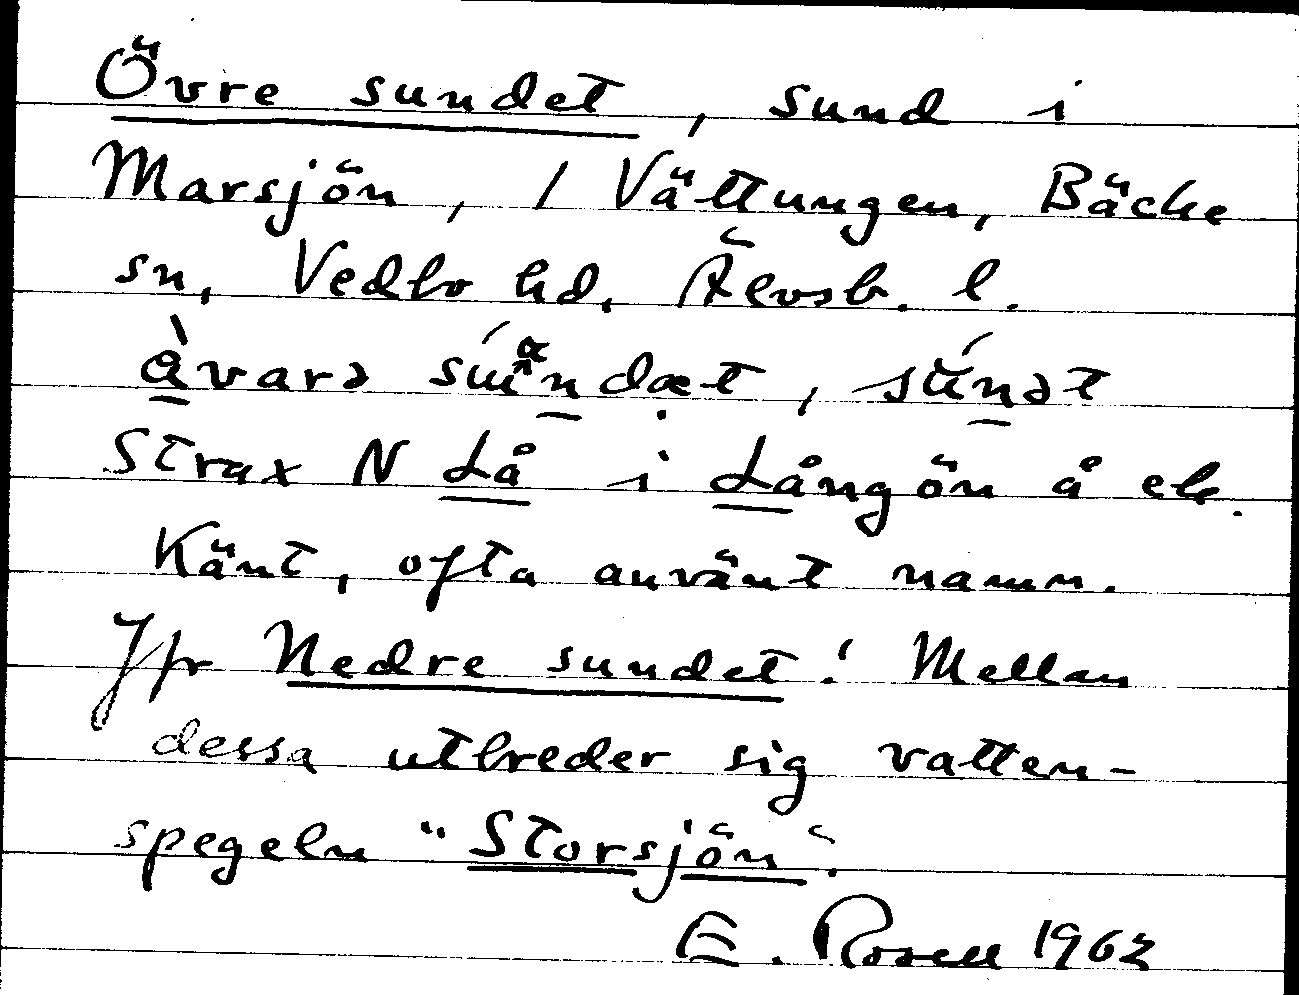 Övre sundet, sund i
Marsjön, / Vättungen, Bäcke
sn, Vedbo hd, Älvsb. l.
strax N Lå i Långön å ek.
Känt, ofta använt namn.
Jfr Nedre sundet! Mellan
dessa utbreder sig vatten-
spegeln "Storsjön".
E. Rosell 1962